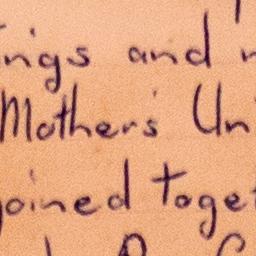 ngs and
Mothers' Un
joined toge